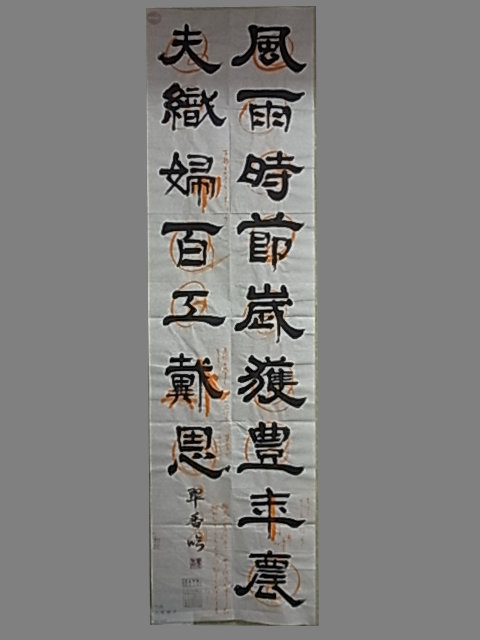 風雨時節歲獲豊年農
夫織婦百工戴恩